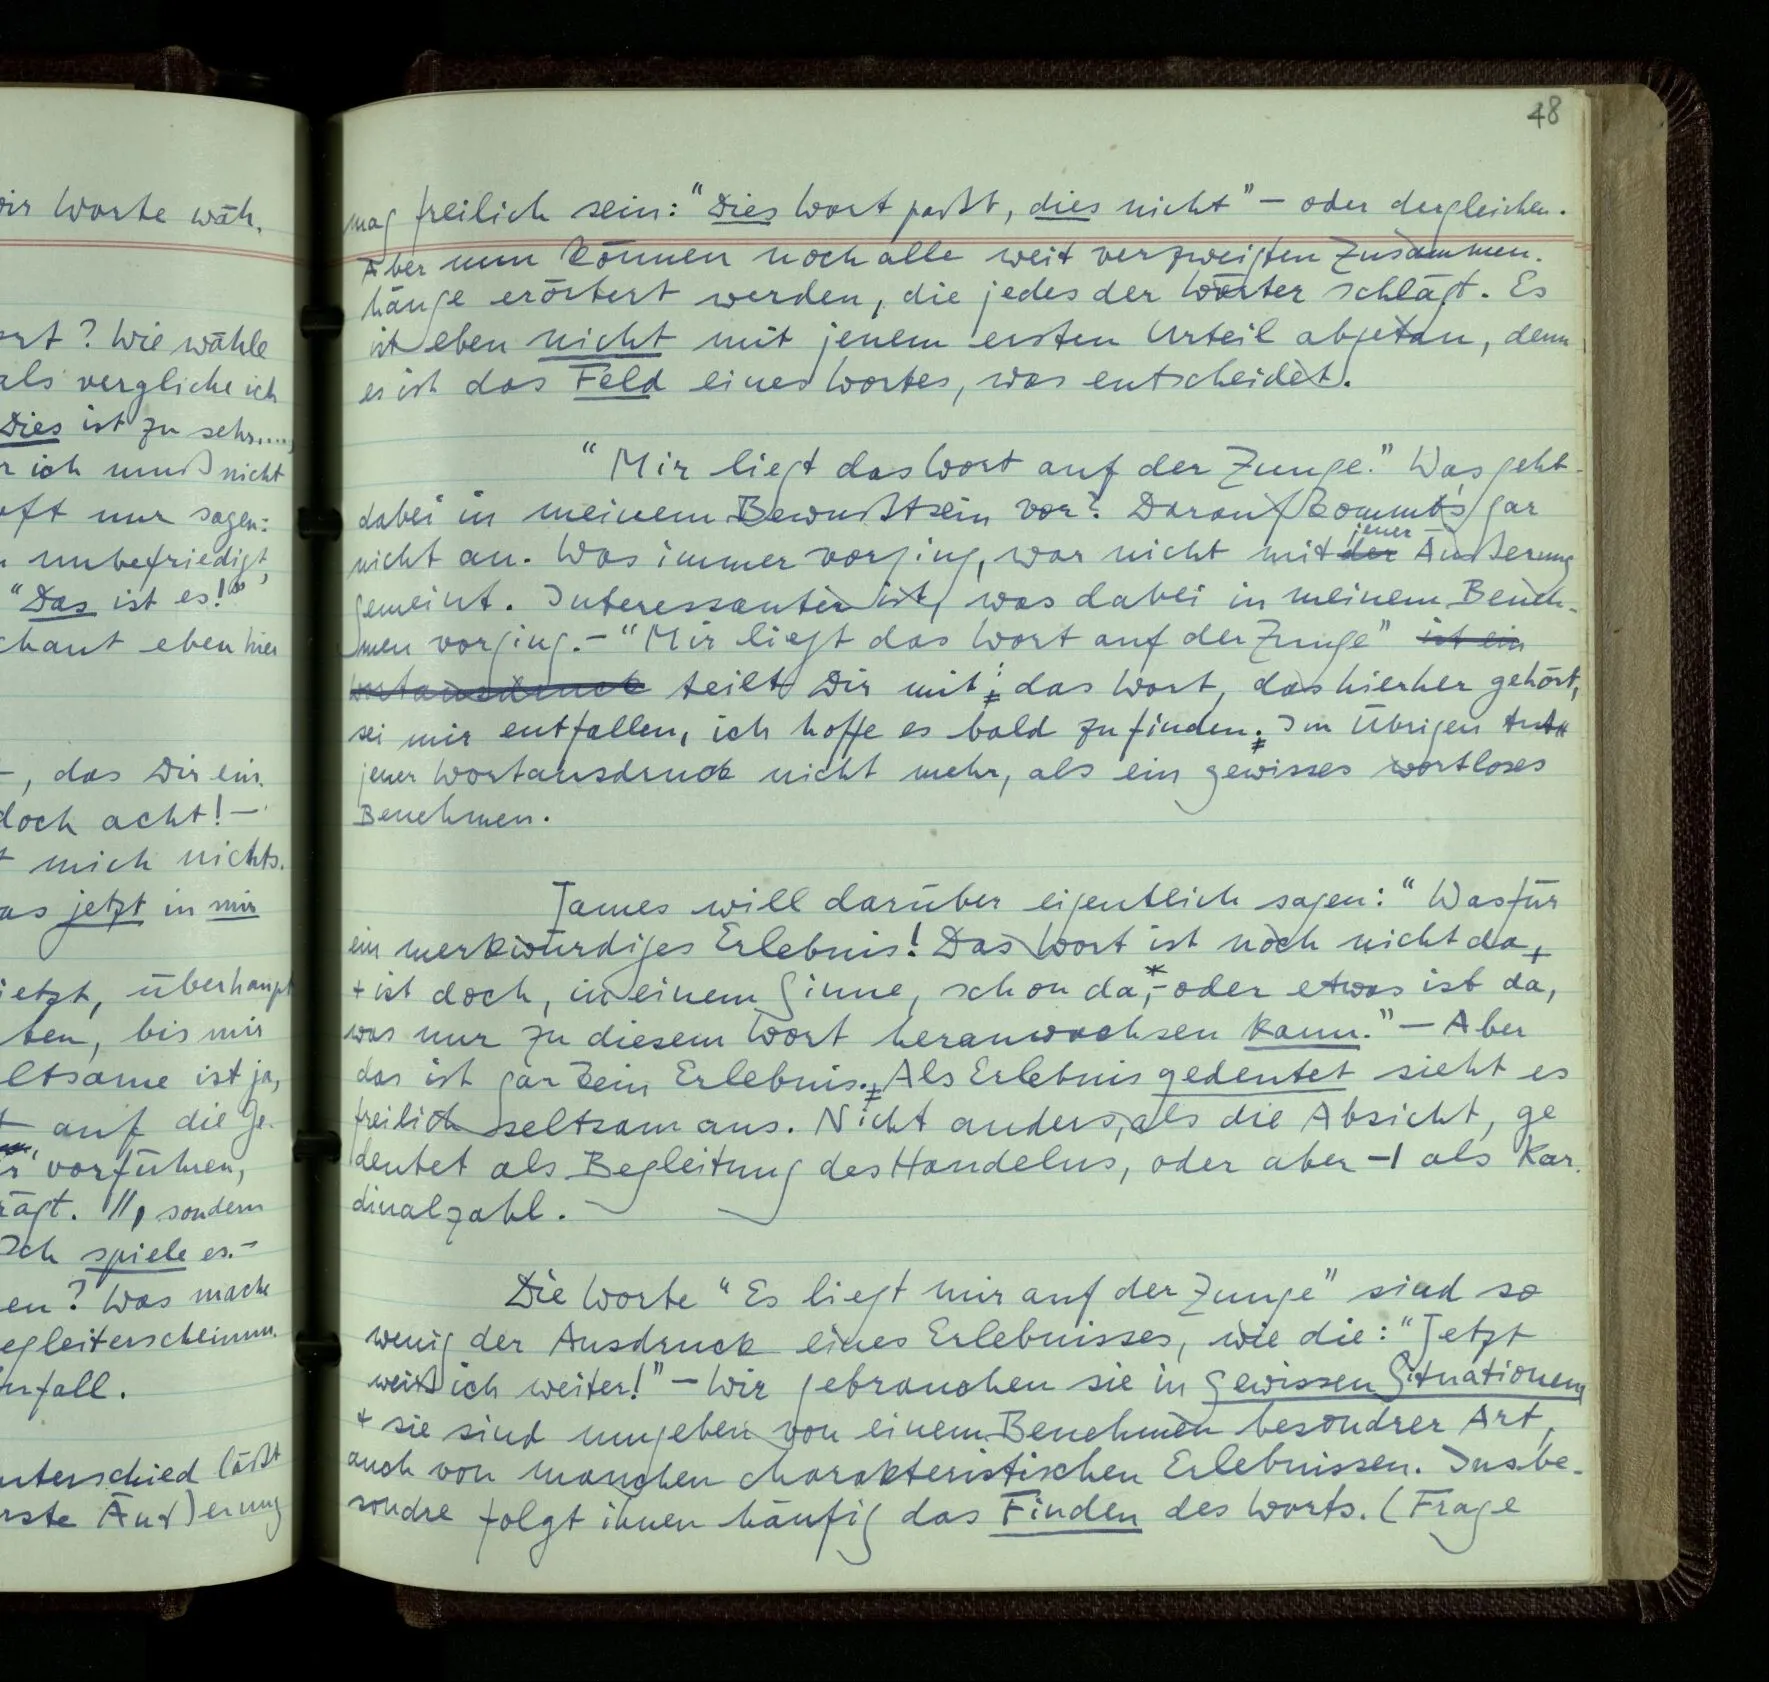 48
mag freilich sein: "Dies Wort paßt, dies nicht" – oder dergleichen.
Aber nun können noch alle weit verzweigten Zusammen-
hänge erörtert werden, die jedes der Wörter schlägt. Es
ist eben nicht mit jenem ersten Urteil abgetan, denn
es ist das Feld eines Wortes, was entscheidet.
"Mir liegt das Wort auf der Zunge." Was geht
dabei in meinem Bewußtsein vor? Darauf kommt's gar
nicht an. Was immer vorging, war nicht mit der jener Äußerung
gemeint. Interessanter ist, was dabei in meinem Beneh-
men vorging. – "Mir liegt das Wort auf der Zunge" ist ein
Wortausdruck teilt Dir mit: das Wort, das hierher gehört,
sei mir entfallen, ich hoffe es bald zu finden. Im Übrigen tut
jener Wortausdruck nicht mehr, als ein gewisses wortloses
Benehmen.
James will darüber eigentlich sagen: "Was für
ein merkwürdiges Erlebnis! Das Wort ist noch nicht da,
+ ist doch, in einem Sinne, schon da, – oder etwas ist da,
was nur zu diesem Wort heranwachsen kann." – Aber
das ist gar kein Erlebnis. Als Erlebnis gedeutet sieht es
freilich seltsam aus. Nicht anders, als die Absicht, ge
deutet als Begleitung des Handelns, oder aber –1 als Kar-
dinalzahl.
Die Worte "Es liegt mir auf der Zunge" sind so
wenig der Ausdruck eines Erlebnisses, wie die: "Jetzt
weiß ich weiter!" – Wir gebrauchen sie in gewissen Situationen
+ sie sind umgeben von einem Benehmen besondrer Art,
auch von manchen charakteristischen Erlebnissen. Insbe-
sondre folgt ihnen häufig das Finden des Worts. (Frage
wir Worte wäh-
ort? Wie wähle
als vergliche ich
Dies ist zu sehr....,
r ich muß nicht
oft nur sagen:
n unbefriedigt,
"Das ist es!"
chaut eben hier
–, das Dir ein-
doch acht! –
t mich nichts.
as jetzt in mir
jetzt, überhaupt
ben, bis mir
eltsame ist ja,
t auf die Ge-
vorführen,
rägt. sondern
Ich spiele es. –
en? Was mache
egleiterscheinun-
nfall.
nterschied läßt
rste Äußerung